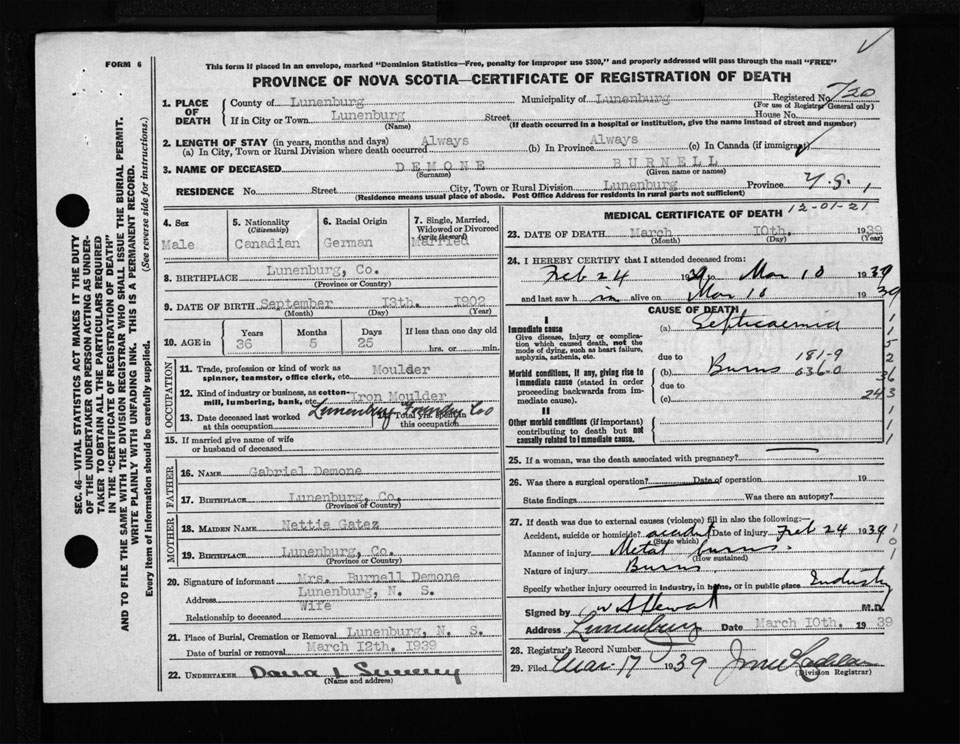 FORM 6
This form if placed in an envelope, marked "Dominion Statistics—Free, penalty for improper use $300," and properly addressed will pass through the mail "FREE"
PROVINCE OF NOVA SCOTIA—CERTIFICATE OF REGISTRATION OF DEATH
SEC. 46—VITAL STATISTICS ACT MAKES IT THE DUTY
OF THE UNDERTAKER OR PERSON ACTING AS UNDER-
TAKER TO OBTAIN ALL THE PARTICULARS REQUIRED
IN THE "CERTIFICATE OF REGISTRATION OF DEATH"
AND TO FILE THE SAME WITH THE DIVISION REGISTRAR WHO SHALL ISSUE THE BURIAL PERMIT.
WRITE PLAINLY WITH UNFADING INK. THIS IS A PERMANENT RECORD.
Every item of information should be carefully supplied. (See reverse side for instructions.)
1. PLACE OF DEATH County of Lunenburg Municipality of Lunenburg Registered No. 720
(For use of Registrar General only)
If in City or Town Lunenburg Street House No.
(Name) (If death occurred in a hospital or institution, give the name instead of street and number)
2. LENGTH OF STAY (in years, months and days)
(a) In City, Town or Rural Division where death occurred Always (b) In Province Always (c) In Canada (if immigrant)
3. NAME OF DECEASED DEMONE BURNELL
(Surname) (Given name or names)
RESIDENCE No. Street City, Town or Rural Division Lunenburg Province
(Residence means usual place of abode. Post Office Address for residents in rural parts not sufficient)
4. Sex Male
5. Nationality (Citizenship) Canadian
6. Racial Origin German
7. Single, Married, Widowed or Divorced (write the word) Married
8. BIRTHPLACE Lunenburg, Co.
(Province or Country)
9. DATE OF BIRTH September 13th. 1902
(Month) (Day) (Year)
10. AGE in Years 36 Months 5 Days 25 If less than one day old hrs. or min.
OCCUPATION
11. Trade, profession or kind of work as spinner, teamster, office clerk, etc. Moulder
12. Kind of industry or business, as cotton-mill, lumbering, bank, etc. Iron Moulder
Lunenburg Foundry Co
13. Date deceased last worked at this occupation Total yrs. spent in this occupation
15. If married give name of wife or husband of deceased
FATHER
16. NAME Gabriel Demone
17. BIRTHPLACE Lunenburg, Co,
(Province or Country)
MOTHER
18. MAIDEN NAME Nettie Gatez
19. BIRTHPLACE Lunenburg, Co.
(Province or Country)
20. Signature of informant Mrs. Burnell Demone
Address Lunenburg, N. S.
Relationship to deceased Wife
21. Place of Burial, Cremation or Removal Lunenburg, N. S.
Date of burial or removal March 12th. 1939
22. UNDERTAKER
(Name and address)
MEDICAL CERTIFICATE OF DEATH 12-01-21
23. DATE OF DEATH March 10th. 1939
(Month) (Day) (Year)
24. I HEREBY CERTIFY that I attended deceased from:
Feb 24 1939 to Mar 10 1939
and last saw him alive on Mar 10 1939
CAUSE OF DEATH
I
Immediate cause (a) Septicaemia
Give disease, injury or complication which caused death, not the mode of dying, such as heart failure, asphyxia, asthenia, etc.
due to 181-9
Morbid conditions, if any, giving rise to immediate cause (stated in order proceeding backwards from immediate cause). (b) Burns 036-0
due to
(c)
II
Other morbid conditions (if important) contributing to death but not causally related to immediate cause.
1 1 5 2 36 243 1 1 1
25. If a woman, was the death associated with pregnancy?
26. Was there a surgical operation? Date of operation 19
State findings Was there an autopsy?
27. If death was due to external causes (violence) fill in also the following:—
Accident, suicide or homicide? accident Date of injury Feb 24 1939
(State which)
Manner of injury Metal burns.
(How sustained)
Nature of injury Burns
Specify whether injury occurred in industry, in home, or in public place Industry
Signed by M.D.
Address Lunenburg Date March 10th. 1939
28. Registrar's Record Number
29. Filed Mar 17 1939
(Division Registrar)